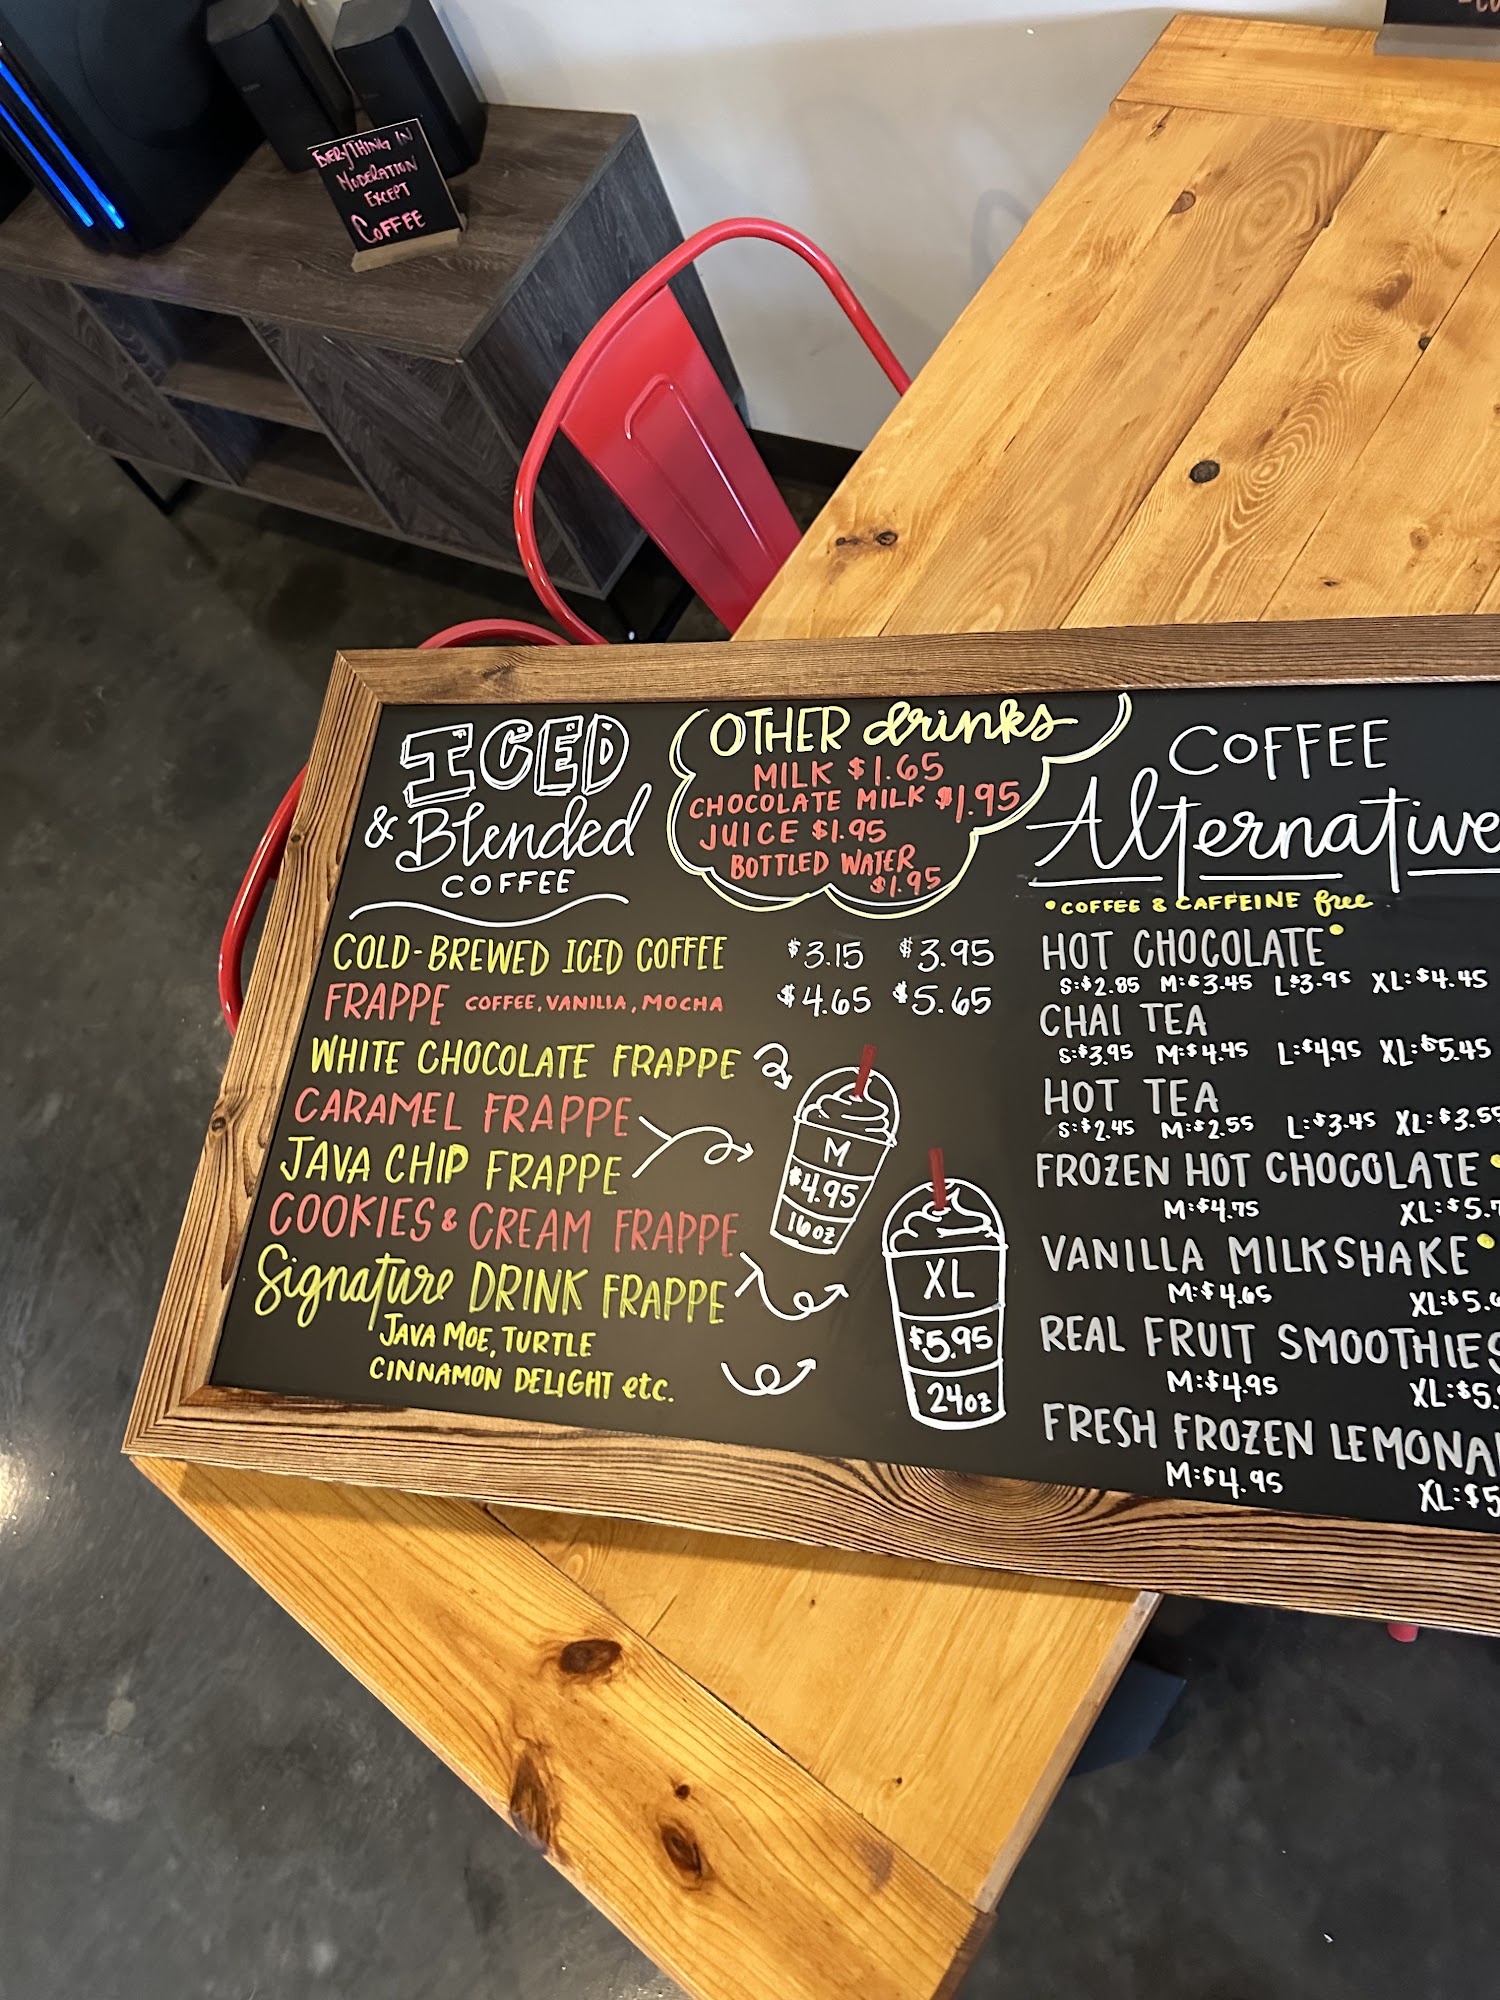 EVERYTHING IN
MODERATION
EXCEPT
COFFEE
ICED
& Blended
COFFEE
COLD-BREWED ICED COFFEE $3.15 $3.95
FRAPPE COFFEE, VANILLA, MOCHA $4.65 $5.65
WHITE CHOCOLATE FRAPPE
CARAMEL FRAPPE
JAVA CHIP FRAPPE
COOKIES & CREAM FRAPPE
Signature DRINK FRAPPE
JAVA MOE, TURTLE
CINNAMON DELIGHT etc.
M
$4.95
16oz
XL
$5.95
24oz
OTHER drinks
MILK $1.65
CHOCOLATE MILK $1.95
JUICE $1.95
BOTTLED WATER
$1.95
COFFEE
Alternative
•COFFEE & CAFFEINE free
HOT CHOCOLATE•
S:$2.85 M:$3.45 L:$3.95 XL:$4.45
CHAI TEA
S:$3.95 M:$4.45 L:$4.95 XL:$5.45
HOT TEA
S:$2.45 M:$2.55 L:$3.45 XL:$3.55
FROZEN HOT CHOCOLATE•
M:$4.75 XL:$5.7
VANILLA MILKSHAKE•
M:$4.65 XL:$5.6
REAL FRUIT SMOOTHIES
M:$4.95 XL:$5.
FRESH FROZEN LEMONA
M:$4.95 XL:$5